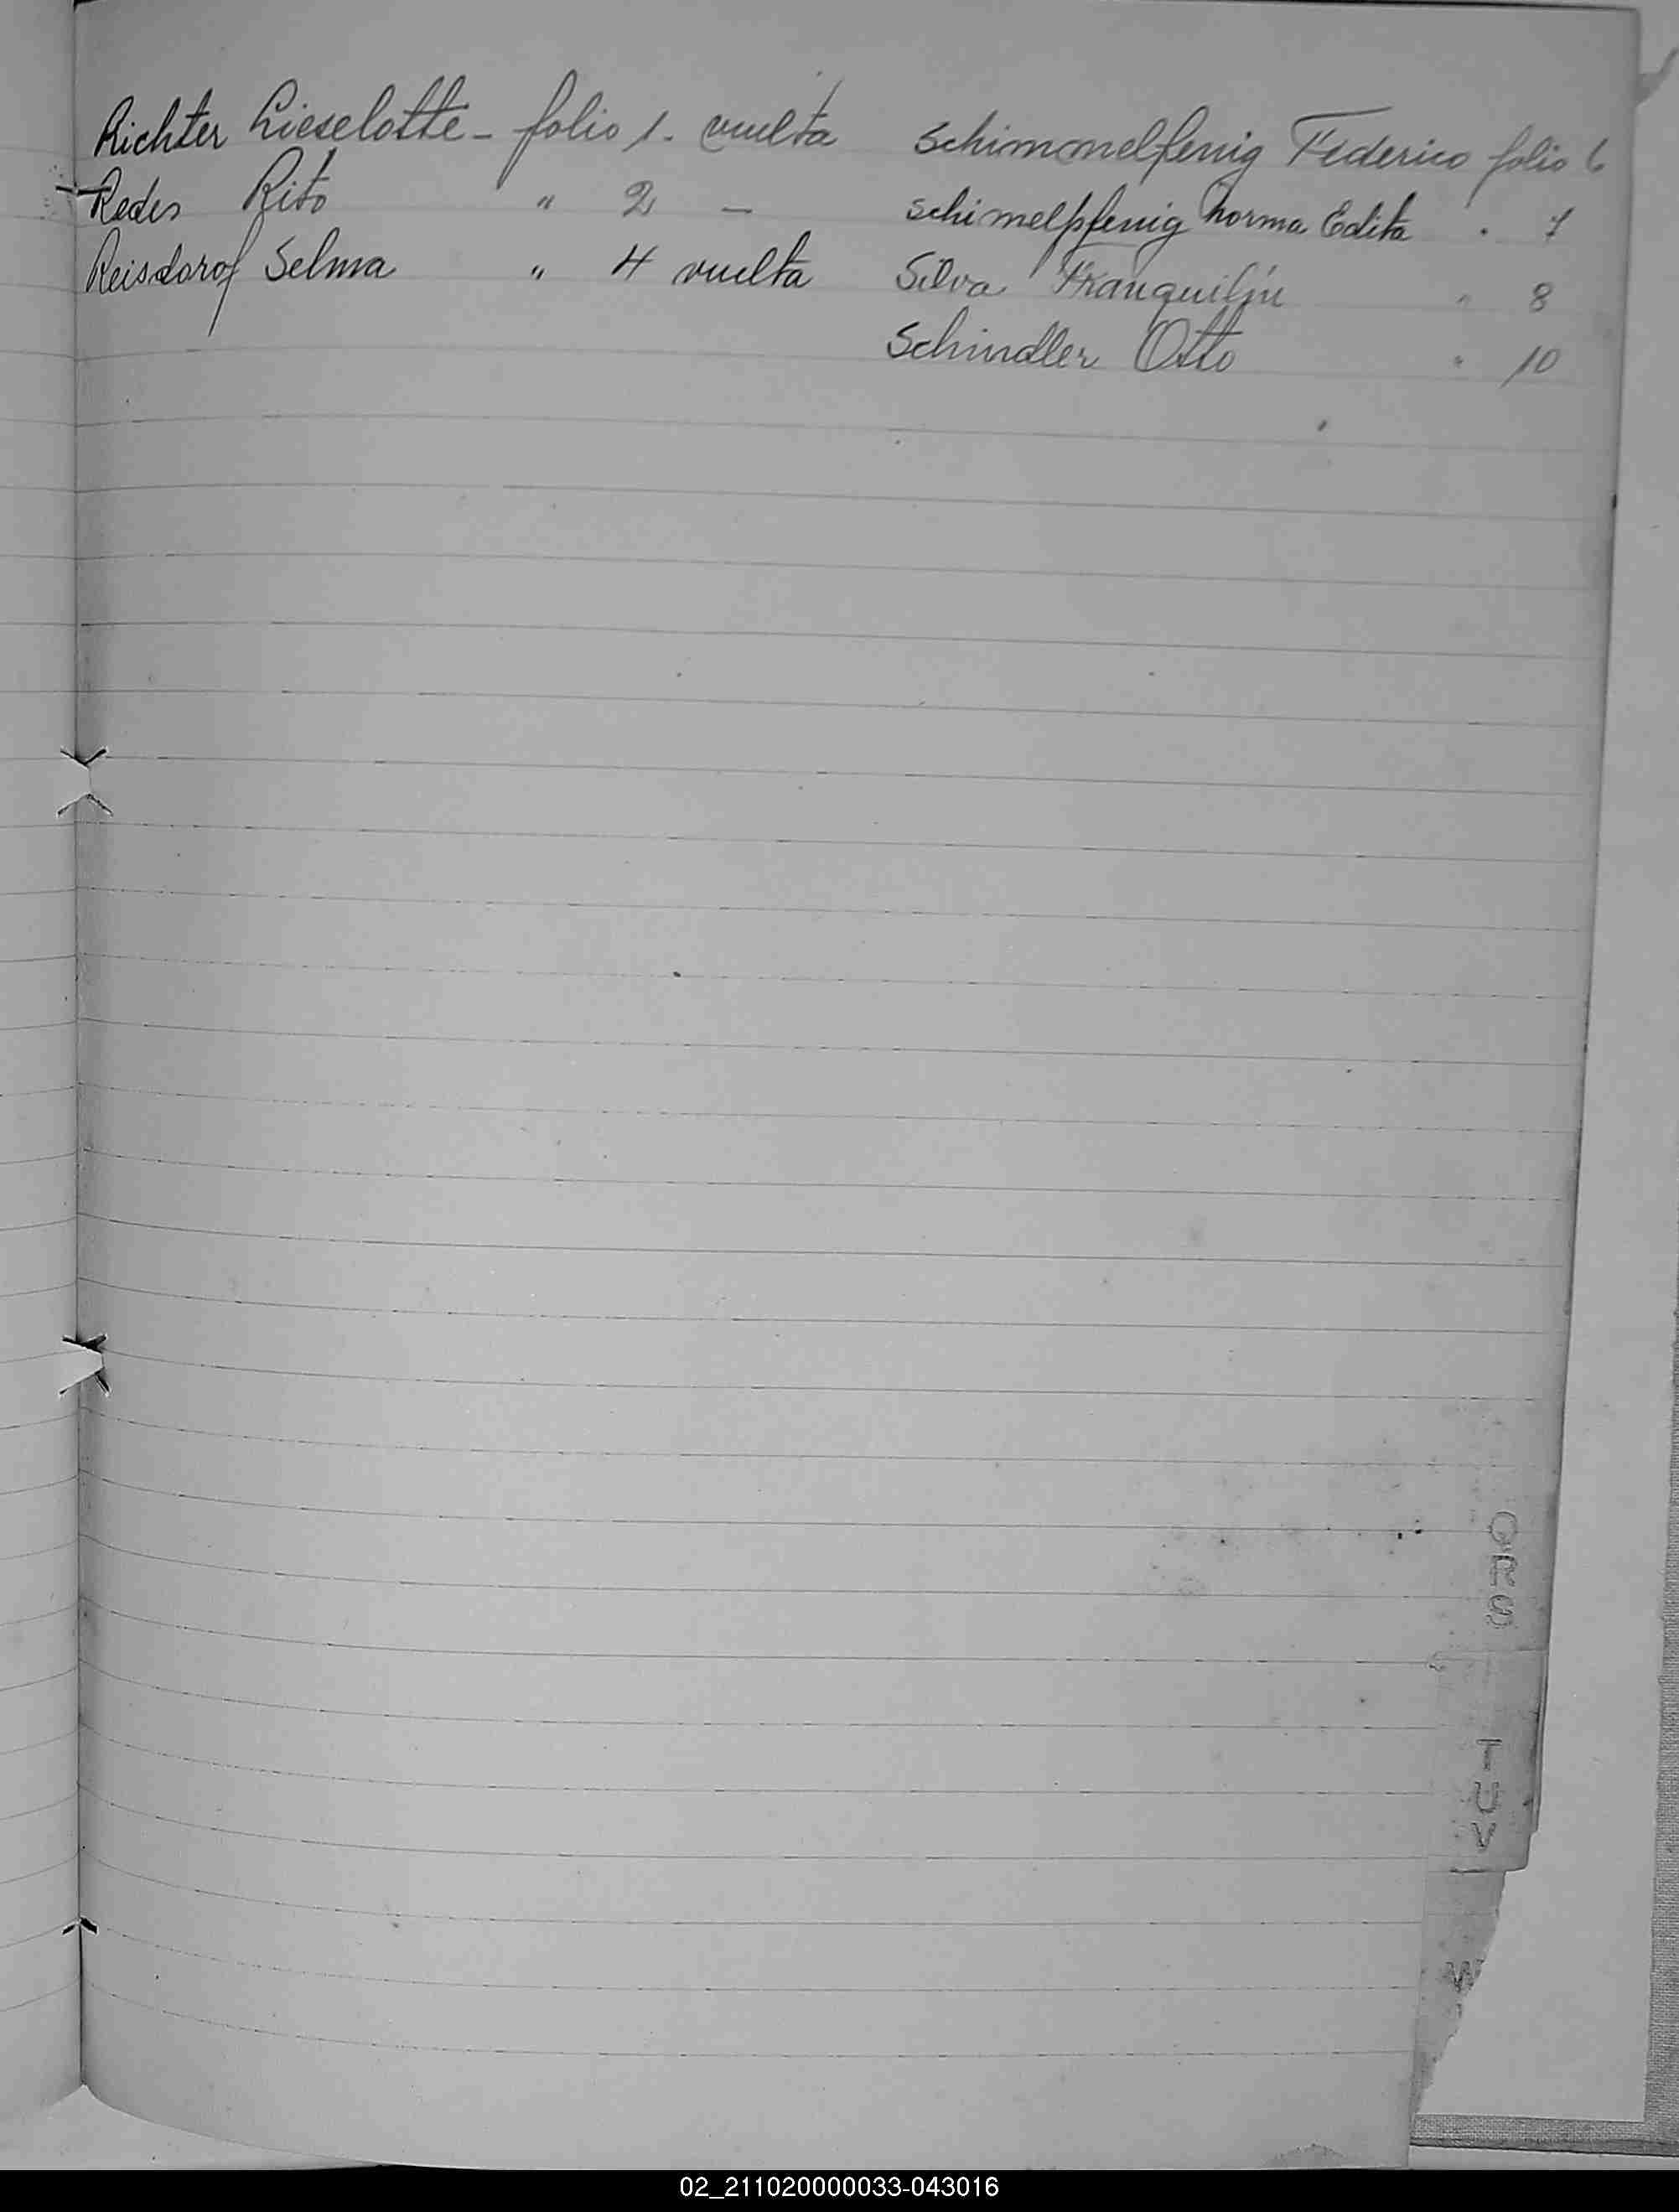 Richter Lieselotte - folio 1. vuelta
Redes Rito " 2 -
Reisdorof Selma " 4 vuelta
Schimmelfenig Federico folio 6
Schimelpfenig Norma Edita " 7
Silva Franquilin " 8
Schindler Otto " 10
QRS
TUV
W
02_211020000033-043016